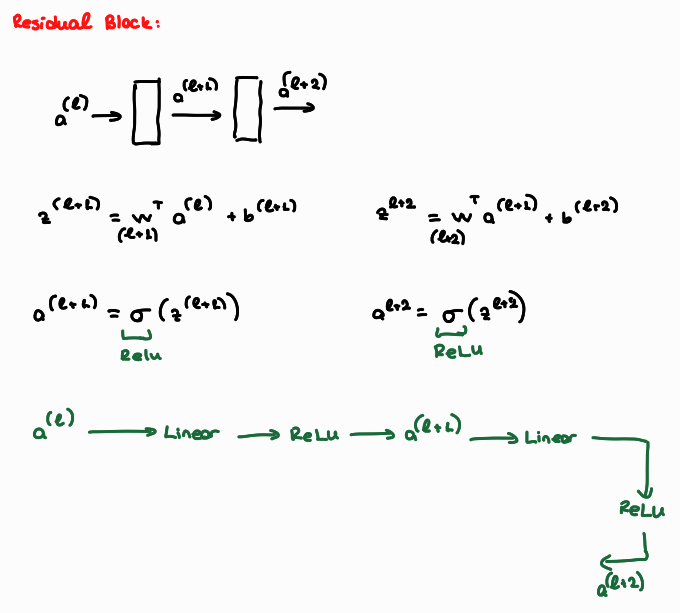 Residual Block:
a^(l) → a^(l+1) → a^(l+2)
z^(l+1) = w^T_(l+1) a^(l) + b^(l+1)
z^l+2 = w^T_(l+2) a^(l+1) + b^(l+2)
a^(l+1) = σ(z^(l+1))
a^l+2 = σ(z^l+2)
Relu
ReLU
a^(l) → Linear → ReLU → a^(l+1) → Linear
ReLU
a^(l+2)